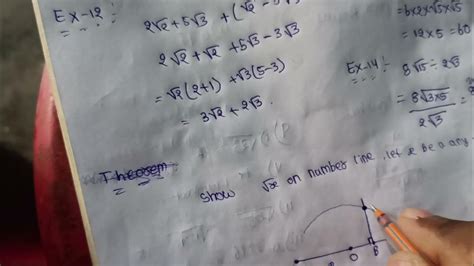 Ex-12:
2√2 + 5√3 + (√2 -
2√2 + √2 + 5√3 - 3√3
= √2 (2+1) + √3 (5-3)
= 3√2 + 2√3.
= 6×2×√5×√5
= 12×5 = 60
Ex-14:-
8√15 ÷ 2√3
= 8√3×5
2√3
Theorem
Show √x on number line. let x be a any
O B